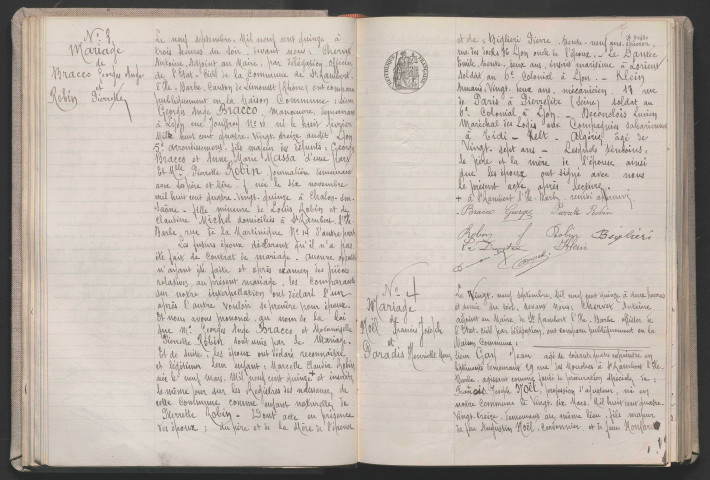 N° 3
Mariage
de
Bracco Georges Ange
et
Robin Pierrette
Le neuf septembre, Mil neuf cent quinze à
trois heures du soir, devant nous: Chervet
Antoine, Adjoint au Maire, par délégation Officier
de l'Etat-Civil de la Commune de St Rambert
l'Ile-Barbe, Canton de Limonest (Rhône), ont comparu
publiquement en la Maison Commune: Sieur
Georges Ange Bracco, Manœuvre, demeurant
à Lyon rue Jouffroy No 10 né le huit février
Mille huit cent quatre-vingt-treize audit Lyon
5e arrondissement, fils majeur des défunts: Georges
Bracco et Anne Marie Massa d'une part
Et Mlle Pierrette Robin journalière demeurant
avec ses père et mère, née le six novembre
mil huit cent quatre-vingt-quinze à Chalon-sur-
Saône, fille mineure de Louis Robin et de
Claudine Michel domiciliés à St Rambert l'Ile-
Barbe, rue de la Martinique No 14 d'autre part
Les futurs époux déclarent qu'il n'a pas
été fait de contrat de mariage. Aucune opposition
n'ayant été faite et après examen des pièces
relatives au présent mariage, les comparants
sur notre interpellation ont déclaré l'un
après l'autre vouloir se prendre pour époux.
Et nous avons prononcé, au nom de la loi
que Mr Georges Ange Bracco et Mademoiselle
Pierrette Robin sont unis par le Mariage.
Et de suite: les époux ont déclaré reconnaître
et légitimer leur enfant: Marcelle Claudia Robin
née le neuf mars, Mil neuf cent quinze + et inscrite
le même jour sur les Registres des naissances de
cette commune comme enfant naturelle de
Pierrette Robin. Dont acte en présence
des époux; du père et de la Mère de l'épouse
et de Biglieri Pierre, trente-neuf ans,
rue des Docks 76 Lyon oncle de l'épouse. Le Dantec
Emile trente-deux ans, inscrit maritime à Lorient
soldat au 6e Colonial à Lyon. Klein
Armand vingt-deux ans, mécanicien, 18 rue
de Paris à Pierrefitte (Seine) soldat au
6e Colonial à Lyon. Lucien
Maréchal des Logis aux Compagnies Sahariennes
à Tidi-Kelt - Algérie, âgé de
Vingt-sept ans. Lesquels témoins;
le père et la mère de l'épouse ainsi
que les époux ont signé avec nous
le présent acte après lecture.
+ à St Rambert l'Ile-Barbe,
Bracco Georges Pierrette Robin
Robin Robin Biglieri
Le Dantec Klein
N° 4
Mariage
Noël Francis Joseph
et
Paradis Henriette Marie
Le Vingt-neuf Septembre, Mil neuf cent quinze à onze heures
et demie du soir, devant nous, Chervet Antoine,
adjoint au Maire de St Rambert l'Ile-Barbe Officier de
l'Etat-Civil par délégation, ont comparu publiquement en la
Maison Commune:
Sieur Jean âgé de soixante-quatre
demeurant 29 rue des Mouches à St Rambert l'Ile-
Barbe, agissant comme fondé de procuration spéciale, de:
Francis Joseph Noël, profession d'ajusteur, né en
notre Commune le Vingt-six Mars, Mil huit cent quatre-
Vingt-treize, demeurant au même lieu, fils majeur
de feu Augustin Noël, cordonnier et de feue